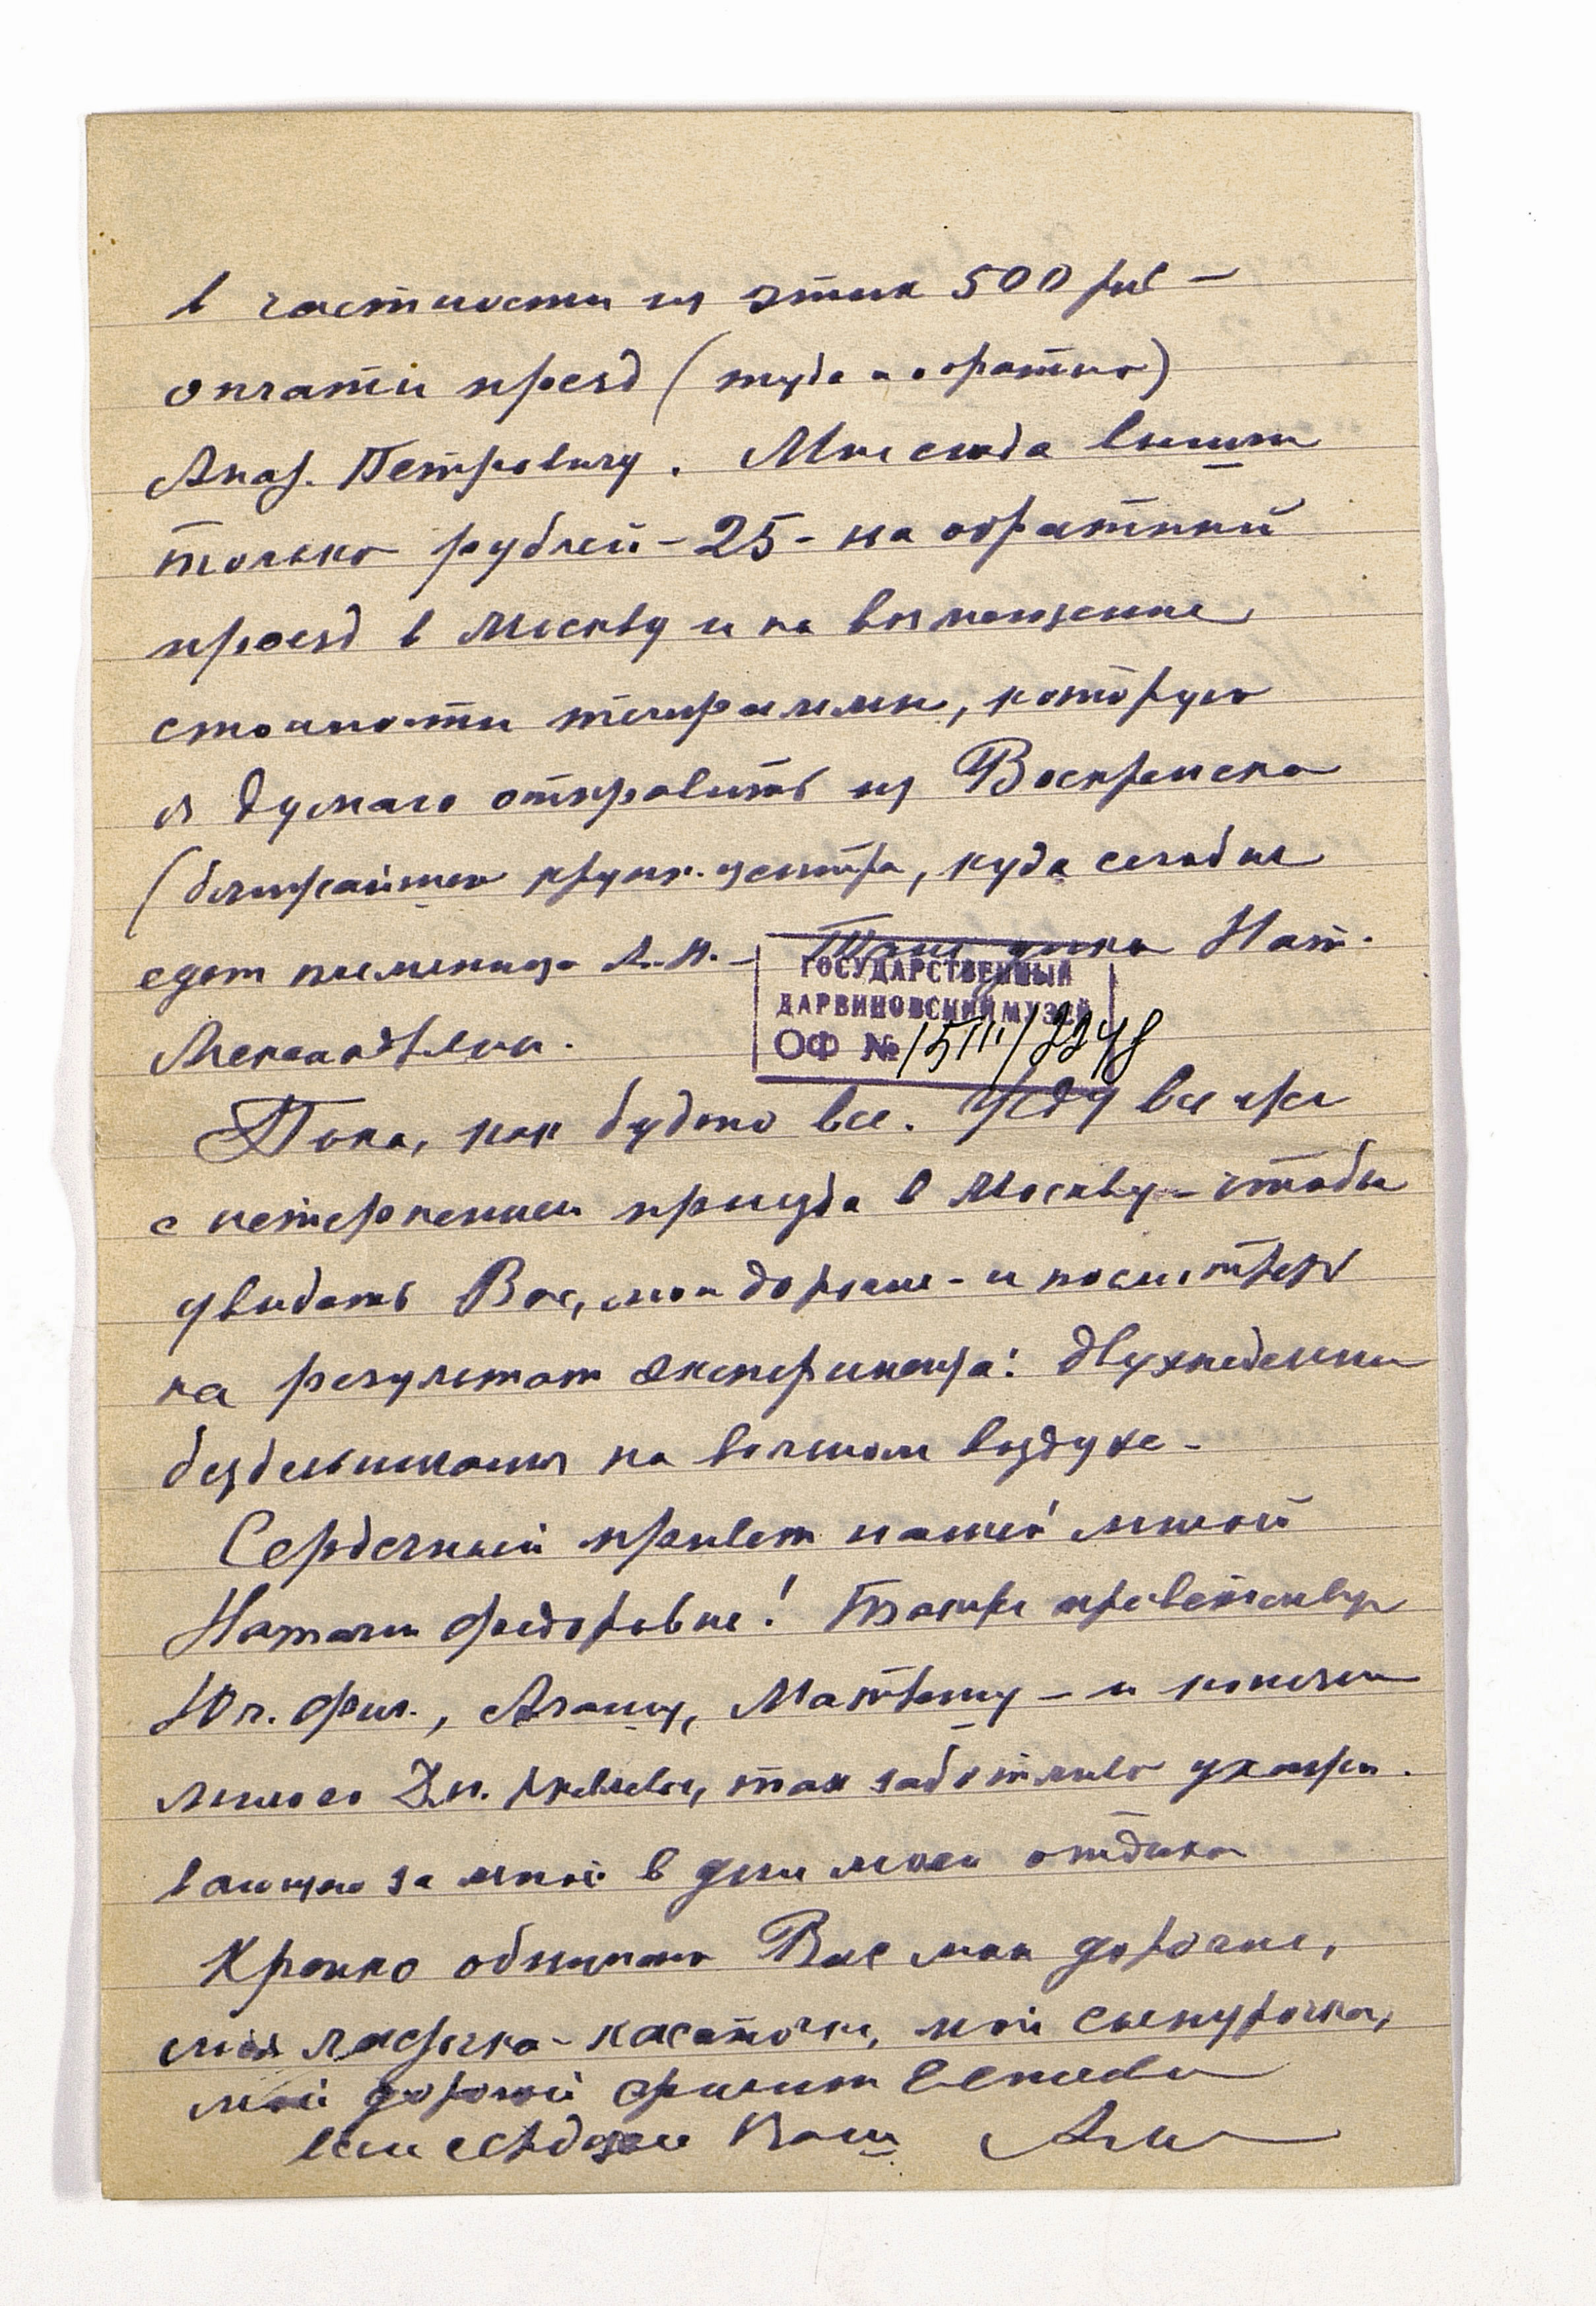 в частности из этих 500 руб –
оплати проезд (туда и обратно)
Анаф. Петровичу. Мне сюда вышли
только рублей – 25 – на обратный
проезд в Москву и на возмещение
стоимости телеграммы, которую
я думаю отправить из Воскресенска
(ближайшего крупн. центра, куда сегодня
едет племянница А.Н. – Нат.
ГОСУДАРСТВЕННЫЙ
ДАРВИНОВСКИЙ МУЗЕЙ
ОФ № 15111/2248
Пока, как будто все. Жду все же
с нетерпением приезда в Москву – чтобы
увидать Вас, мои дорогие – и посмотреть
на результат эксперимента: двухнедельн.
бездельничания на вольном воздухе –
Сердечный привет нашей милой
Наталии Федоровне! Также приветствую
Юл. Фил., Агашу, Матвешу – и конечно
милого Дм. Яковлевича, так заботливо ухажи-
вающего за мной в дни моего отдыха
Крепко обнимаю Вас мои дорогие,
моя ласочка-касаточка, мой сынурочка,
мой дорогой филит
всем сердцем Ваш